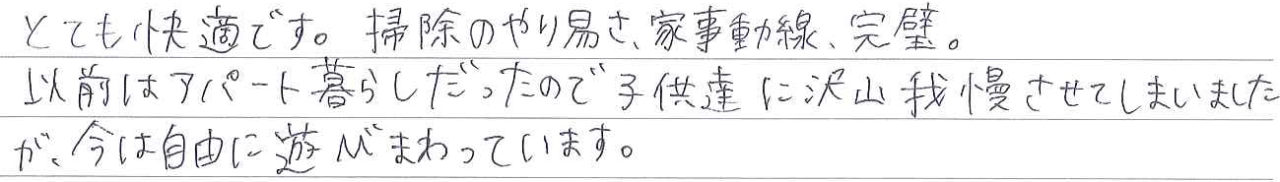 とても快適です。掃除のやり易さ、家事動線、完璧。
以前はアパート暮らしだったので子供達に沢山我慢させてしまいました
が、今は自由に遊びまわっています。